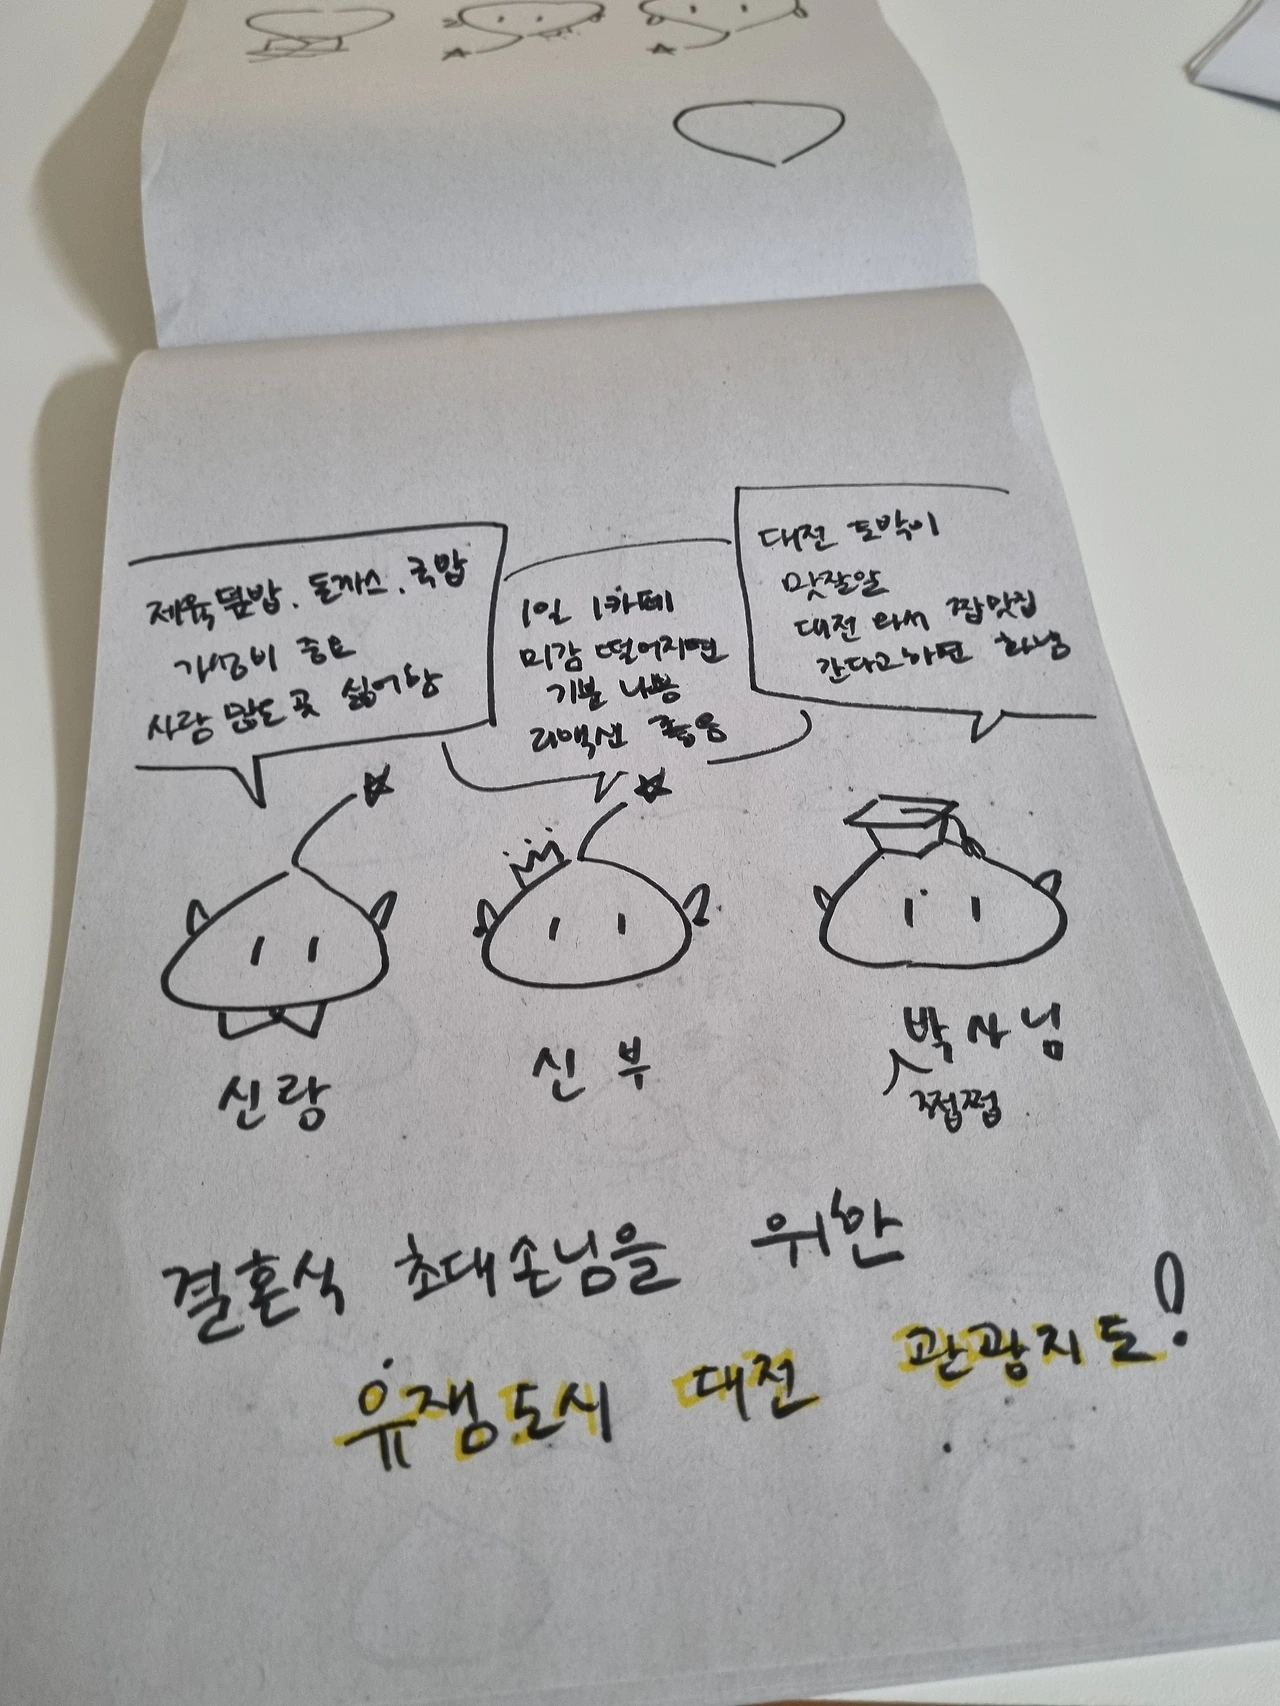 제육덮밥. 돈까스. 국밥
가성비 중요
사람 많은 곳 싫어함
1일 1카페
미감 떨어지면
기분 나쁨
리액션 좋음
대전 토박이
맛잘알
대전 와서 짭맛집
간다고하면 화냄
신랑
신부
박사님
쩝쩝
결혼식 초대손님을 위한
유잼도시 대전 관광지도!